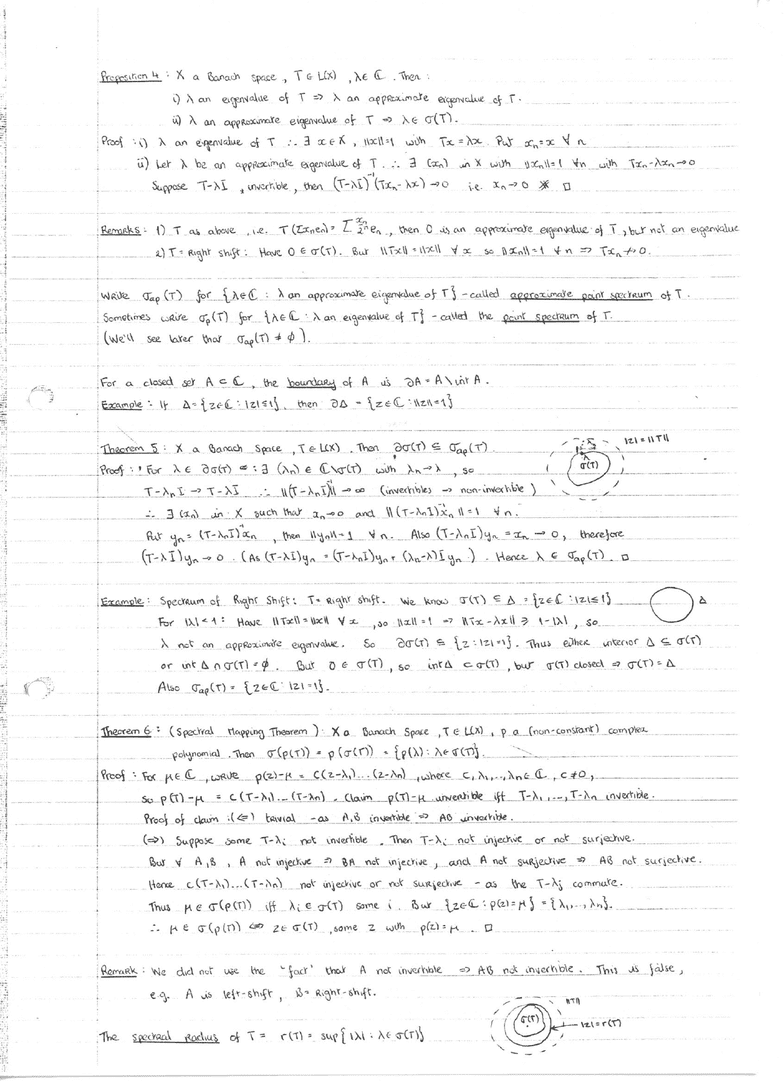 Proposition 4 : X a Banach space, T ∈ L(X), λ ∈ ℂ. Then :
i) λ an eigenvalue of T ⇒ λ an approximate eigenvalue of T.
ii) λ an approximate eigenvalue of T ⇒ λ ∈ σ(T).
Proof : i) λ an eigenvalue of T ∴ ∃ x ∈ X, ||x||=1 with Tx = λx. Put xₙ = x ∀ n
ii) Let λ be an approximate eigenvalue of T. ∴ ∃ (xₙ) in X with ||xₙ||=1 ∀n with Txₙ-λxₙ → 0
Suppose T-λI, invertible, then (T-λI)⁻¹(Txₙ-λxₙ) → 0 i.e. xₙ → 0 ※ □
Remarks : 1) T as above, i.e. T(Σxₙeₙ) = Σ xₙ/2ⁿ eₙ, then 0 is an approximate eigenvalue of T, but not an eigenvalue
2) T = Right shift : Have 0 ∈ σ(T). But ||Tx|| = ||x|| ∀ x so ||xₙ||=1 ∀ n ⇒ Txₙ ↛ 0.
Write σap(T) for {λ∈ℂ : λ an approximate eigenvalue of T} - called approximate point spectrum of T.
Sometimes write σp(T) for {λ∈ℂ : λ an eigenvalue of T} - called the point spectrum of T.
(We'll see later that σap(T) ≠ ∅).
For a closed set A ⊂ ℂ, the boundary of A is ∂A = A \ int A.
Example : If Δ = {z∈ℂ : |z|≤1}, then ∂Δ = {z∈ℂ : ||z||=1}
Theorem 5 : X a Banach Space, T ∈ L(X). Then ∂σ(T) ⊆ σap(T)
|z| = ||T||
σ(T)
Proof : For λ ∈ ∂σ(T) : ∃ (λₙ) ∈ ℂ\σ(T) with λₙ → λ, so
T-λₙI → T-λI ∴ ||(T-λₙI)⁻¹|| → ∞ (invertibles → non-invertible)
∴ ∃ (xₙ) in X such that xₙ → 0 and ||(T-λₙI)⁻¹xₙ|| = 1 ∀ n.
Put yₙ = (T-λₙI)⁻¹xₙ, then ||yₙ||=1 ∀ n. Also (T-λₙI)yₙ = xₙ → 0, therefore
(T-λI)yₙ → 0. (As (T-λI)yₙ = (T-λₙI)yₙ + (λₙ-λ)Iyₙ). Hence λ ∈ σap(T). □
Example : Spectrum of Right Shift : T = Right shift. We know σ(T) ⊆ Δ = {z∈ℂ : |z|≤1}
Δ
For |λ|<1 : Have ||Tx|| = ||x|| ∀ x, so ||x||=1 ⇒ ||Tx-λx|| ≥ 1-|λ|, so
λ not an approximate eigenvalue. So ∂σ(T) ⊆ {z : |z|=1}. Thus either interior Δ ⊆ σ(T)
or int Δ ∩ σ(T) = ∅. But 0 ∈ σ(T), so int Δ ⊂ σ(T), but σ(T) closed ⇒ σ(T) = Δ
Also σap(T) = {z∈ℂ : |z|=1}.
Theorem 6 : (Spectral Mapping Theorem) : X a Banach Space, T ∈ L(X), p a (non-constant) complex
polynomial. Then σ(p(T)) = p(σ(T)) = {p(λ) : λ ∈ σ(T)}.
Proof : For μ ∈ ℂ, write p(z)-μ = c(z-λ₁)...(z-λₙ), where c, λ₁,..., λₙ ∈ ℂ, c ≠ 0,
so p(T)-μ = c(T-λ₁)...(T-λₙ). Claim p(T)-μ invertible iff T-λ₁,..., T-λₙ invertible.
Proof of claim : (⇐) trivial - as A,B invertible ⇒ AB invertible.
(⇒) Suppose some T-λᵢ not invertible. Then T-λᵢ not injective or not surjective.
But ∀ A,B, A not injective ⇒ BA not injective, and A not surjective ⇒ AB not surjective.
Hence c(T-λ₁)...(T-λₙ) not injective or not surjective - as the T-λⱼ commute.
Thus μ ∈ σ(p(T)) iff λᵢ ∈ σ(T) some i. But {z∈ℂ : p(z)=μ} = {λ₁,..., λₙ}.
∴ μ ∈ σ(p(T)) ⇔ z ∈ σ(T), some z with p(z)=μ. □
Remark : We did not use the "fact" that A not invertible ⇒ AB not invertible. This is false,
e.g. A is left-shift, B = Right-shift.
The spectral radius of T = r(T) = sup{|λ| : λ ∈ σ(T)}
||T||
σ(T)
|z| = r(T)